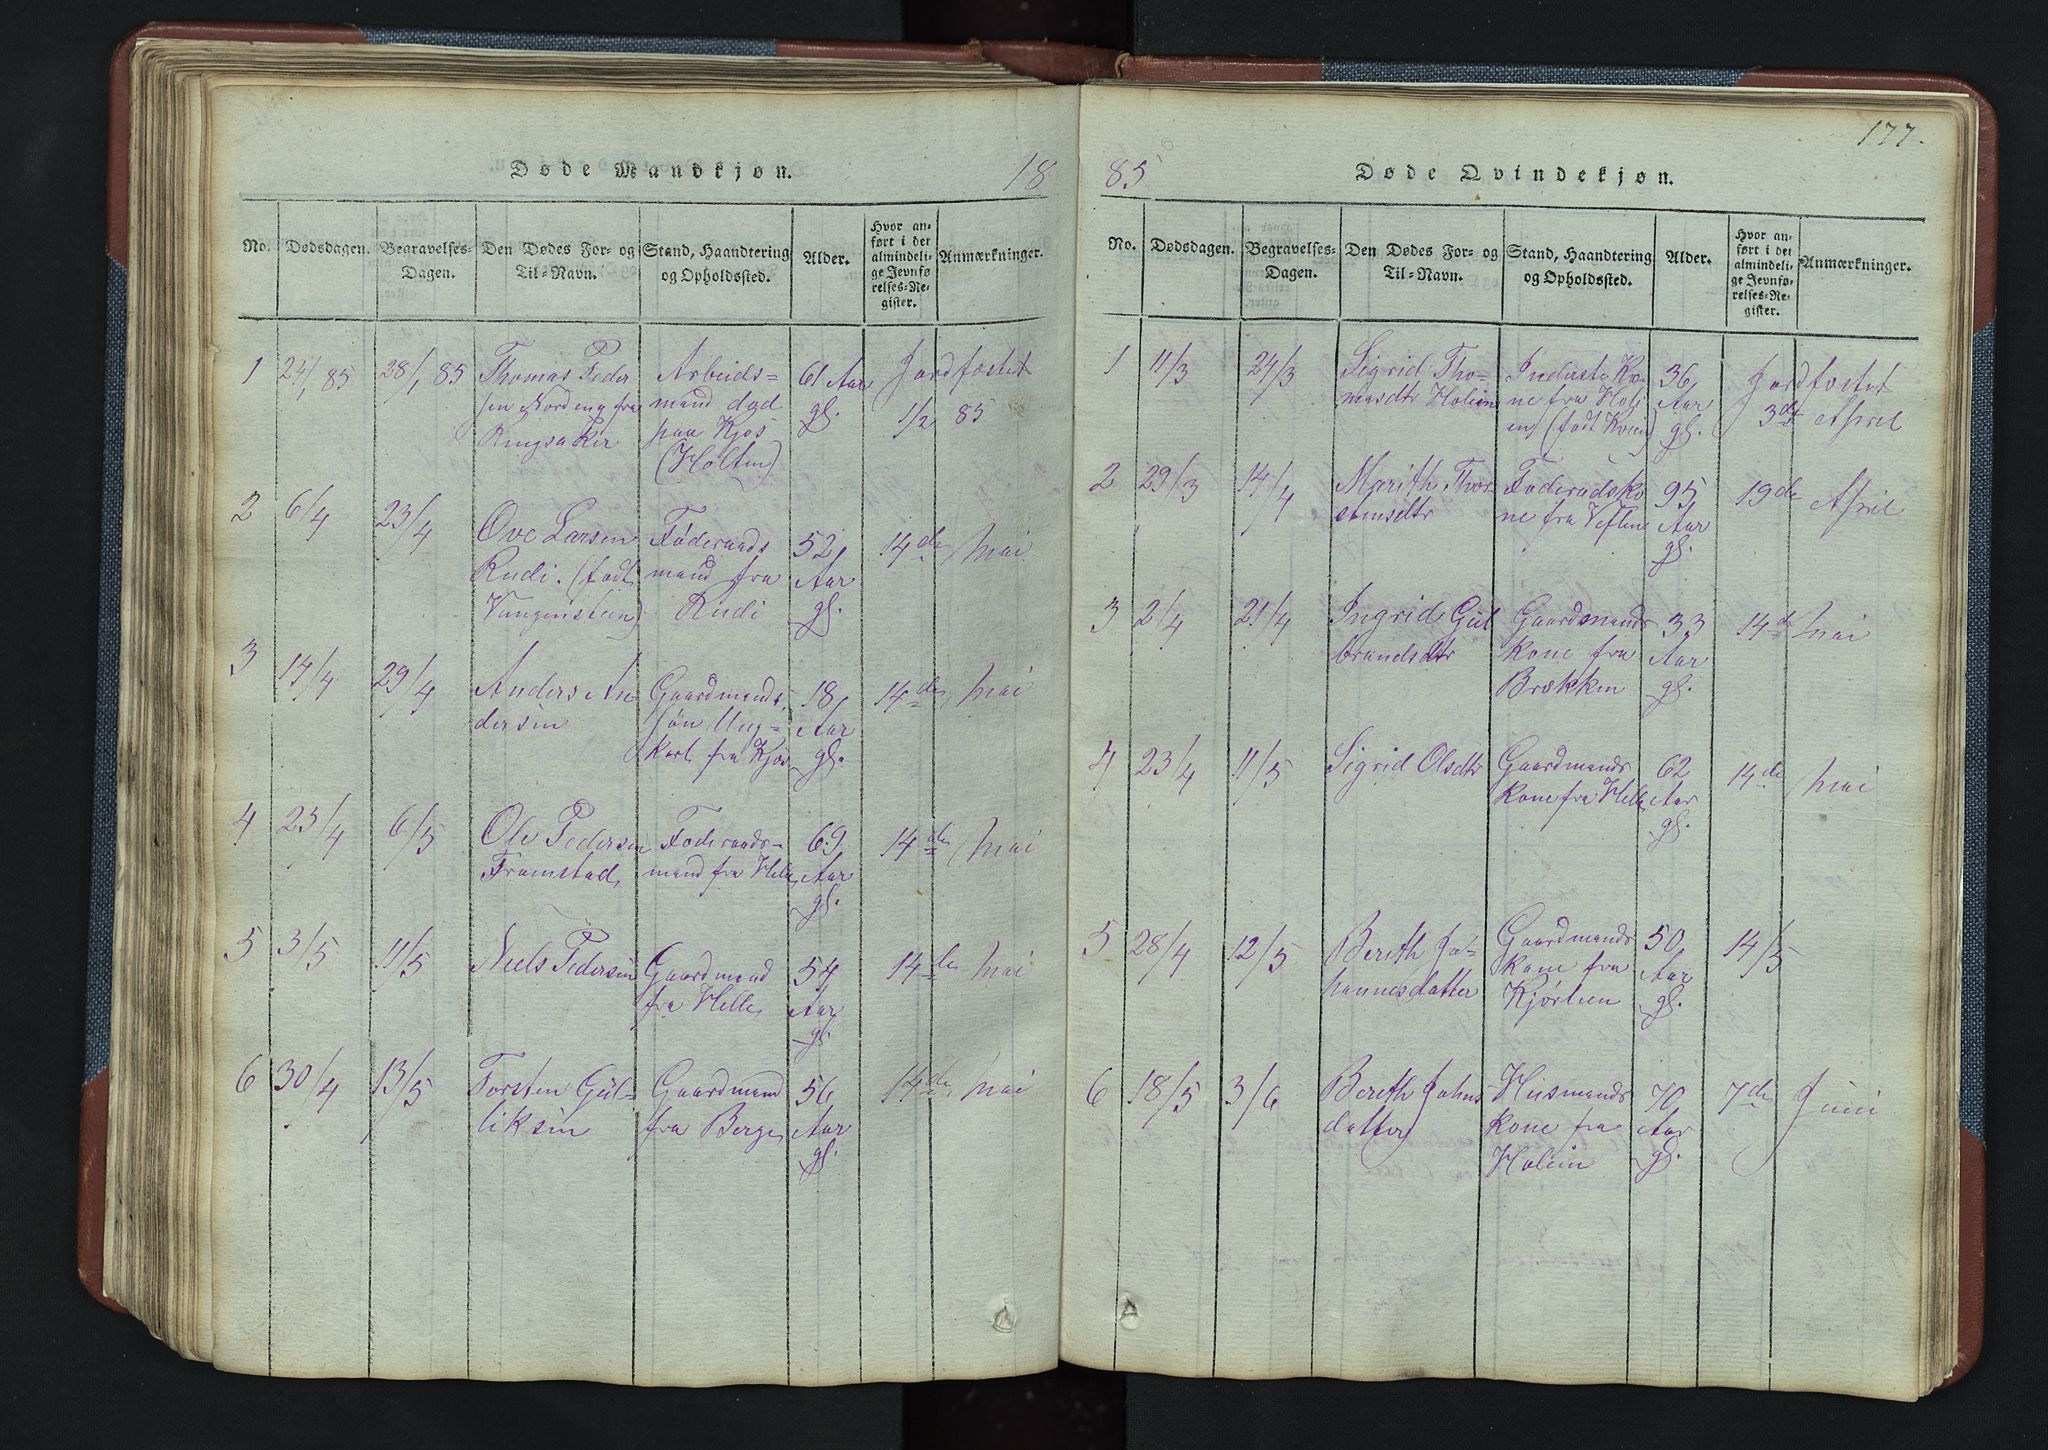 177.
Døde Mandkjøn. 18
No. Dødsdagen. Begravelses-Dagen. Den Dødes For- og Til-Navn. Stand, Haandtering og Opholdssted. Alder. Hvor anført i det almindelige Jevnførelses-Register. Anmærkninger.
1 24/1 85 28/1 85 Thomas Peder Arbeids- 61 Aar Jordfæstet
sen Nordeng fra mand død gl. 1/2 85
Ringsaker paa Kjos
(Holten)
2 6/4 23/4 Ove Larsen Føderaads 52 14de Mai
Rudi. (født mand fra Aar
Vangensteen) Rudi gl.
3 14/4 29/4 Anders An- Gaardmands 18 14de Mai
dersen søn Ung- Aar
karl fra Kjos gl.
4 23/4 6/5 Ole Pedersen Føderaads- 69 14de Mai
Framstad mand fra Helle Aar
gl.
5 3/5 11/5 Niels Pedersen Gaardmand 54 14de Mai
fra Helle Aar
gl.
6 30/4 13/5 Torsten Gul- Gaardmand 56 14de Mai
liksen fra Berge Aar
gl.
85 Døde Qvindekjøn.
No. Dødsdagen. Begravelses-Dagen. Den Dødes For- og Til-Navn. Stand, Haandtering og Opholdssted. Alder. Hvor anført i det almindelige Jevnførelses-Register. Anmærkninger.
1 11/3 24/3 Sigrid Tho- Inderste Ko- 36 Jordfæstet
masdtr Holien ne fra Holi Aar 3de April
en (født Kvien) gl.
2 29/3 14/4 Marith Thor Føderadsko 95 19de April
stensdtr ne fra Veflen Aar
gl.
3 2/4 21/4 Ingrid Gul Gaardmands 33 14de Mai
brandsdtr kone fra Aar
Brækken gl.
4 23/4 11/5 Sigrid Olsdtr Gaardmands 62 14de Mai
kone fra Helle Aar
gl.
5 28/4 12/5 Bereth Jo- Gaardmands 50 14/5
hannesdatter kone fra Aar
Kjørlien gl.
6 18/5 3/6 Bereth Johns Husmands 70 7de Juni
datter kone fra Aar
Holien gl.